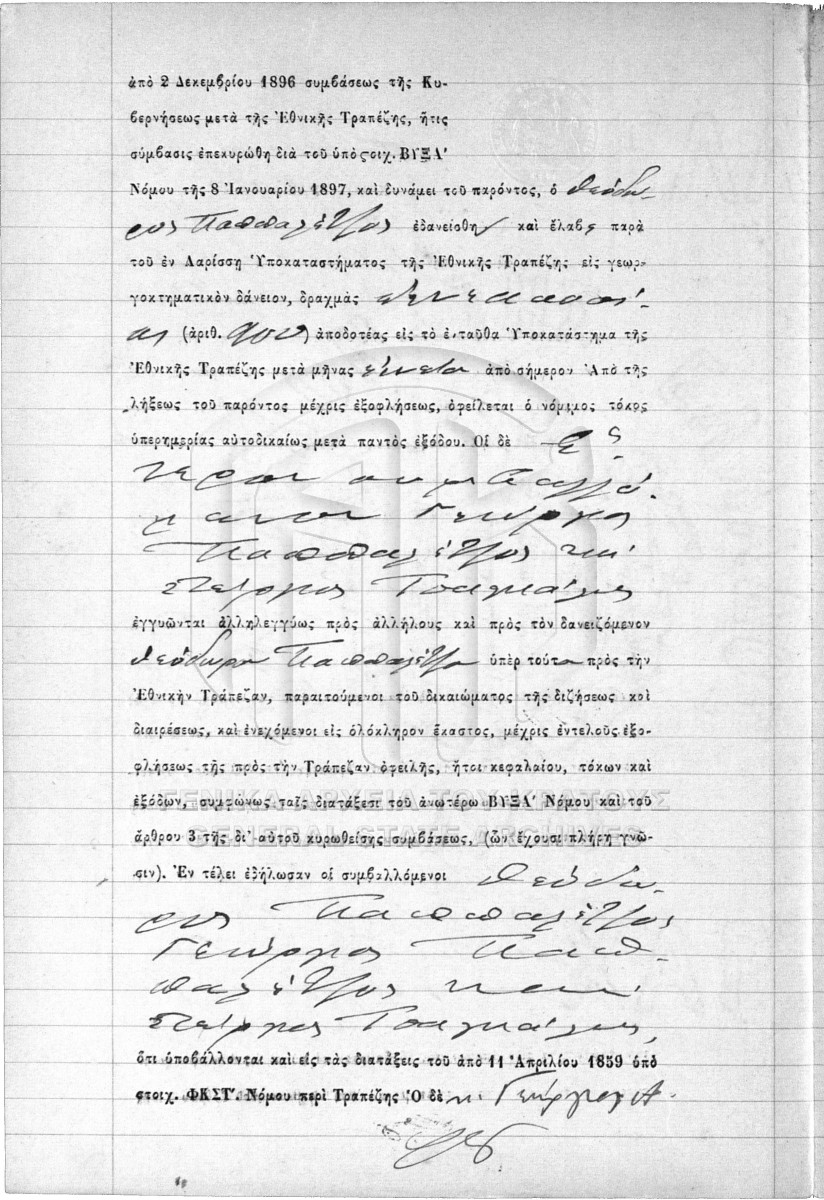 ἀπὸ 2 Δεκεμβρίου 1896 συμβάσεως τῆς Κυ-
βερνήσεως μετὰ τῆς Ἐθνικῆς Τραπέζης, ἥτις
σύμβασις ἐπεκυρώθη διὰ τοῦ ὑπὸ στοιχ. ΒΥΞΑʹ
Νόμου τῆς 8 Ἰανουαρίου 1897, καὶ δυνάμει τοῦ παρόντος, ὁ Θεόδω-
ρος Παππαλέτζος ἐδανείσθη καὶ ἔλαβε παρὰ
τοῦ ἐν Λαρίσση Ὑποκαταστήματος τῆς Ἐθνικῆς Τραπέζης εἰς γεωρ-
γοκτηματικὸν δάνειον, δραχμὰς
(ἀριθ. 900) ἀποδοτέας εἰς τὸ ἐνταῦθα Ὑποκατάστημα τῆς
Ἐθνικῆς Τραπέζης μετὰ μῆνας ἐννέα ἀπὸ σήμερον Ἀπὸ τῆς
λήξεως τοῦ παρόντος μέχρις ἐξοφλήσεως, ὀφείλεται ὁ νόμιμος τόκος
ὑπερημερίας αὐτοδικαίως μετὰ παντὸς ἐξόδου. Οἱ δὲ ἕ-
τεροι συμβαλλό-
μενοι Γεώργιος
Παππαλέτζος καὶ
Στέργιος
ἐγγυῶνται ἀλληλεγγύως πρὸς ἀλλήλους καὶ πρὸς τὸν δανειζόμενον
Θεόδωρον Παππαλέτζον ὑπὲρ τούτου πρὸς τὴν
Ἐθνικὴν Τράπεζαν, παραιτούμενοι τοῦ δικαιώματος τῆς διζήσεως καὶ
διαιρέσεως, καὶ ἐνεχόμενοι εἰς ὁλόκληρον ἕκαστος, μέχρις ἐντελοῦς ἐξο-
φλήσεως τῆς πρὸς τὴν Τράπεζαν ὀφειλῆς, ἤτοι κεφαλαίου, τόκων καὶ
ἐξόδων, συμφώνως ταῖς διατάξεσι τοῦ ἀνωτέρω ΒΥΞΑʹ Νόμου καὶ τοῦ
ΓΕΝΙΚΑ ΑΡΧΕΙΑ ΤΟΥ ΚΡΑΤΟΥΣ
ἄρθρου 3 τῆς δι' αὐτοῦ κυρωθείσης συμβάσεως, (ὧν ἔχουσι πλήρη γνῶ-
GENERAL STATE ARCHIVES
σιν). Ἐν τέλει ἐδήλωσαν οἱ συμβαλλόμενοι Θεόδω-
ρος Παππαλέτζος
Γεώργιος Παπ-
παλέτζος καὶ
Στέργιος
ὅτι ὑποβάλλονται καὶ εἰς τὰς διατάξεις τοῦ ἀπὸ 11 Ἀπριλίου 1859 ὑπὸ
στοιχ. ΦΚΣΤʹ. Νόμου περὶ Τραπέζης Ὁ δὲ κ. Γεώργιος Α.